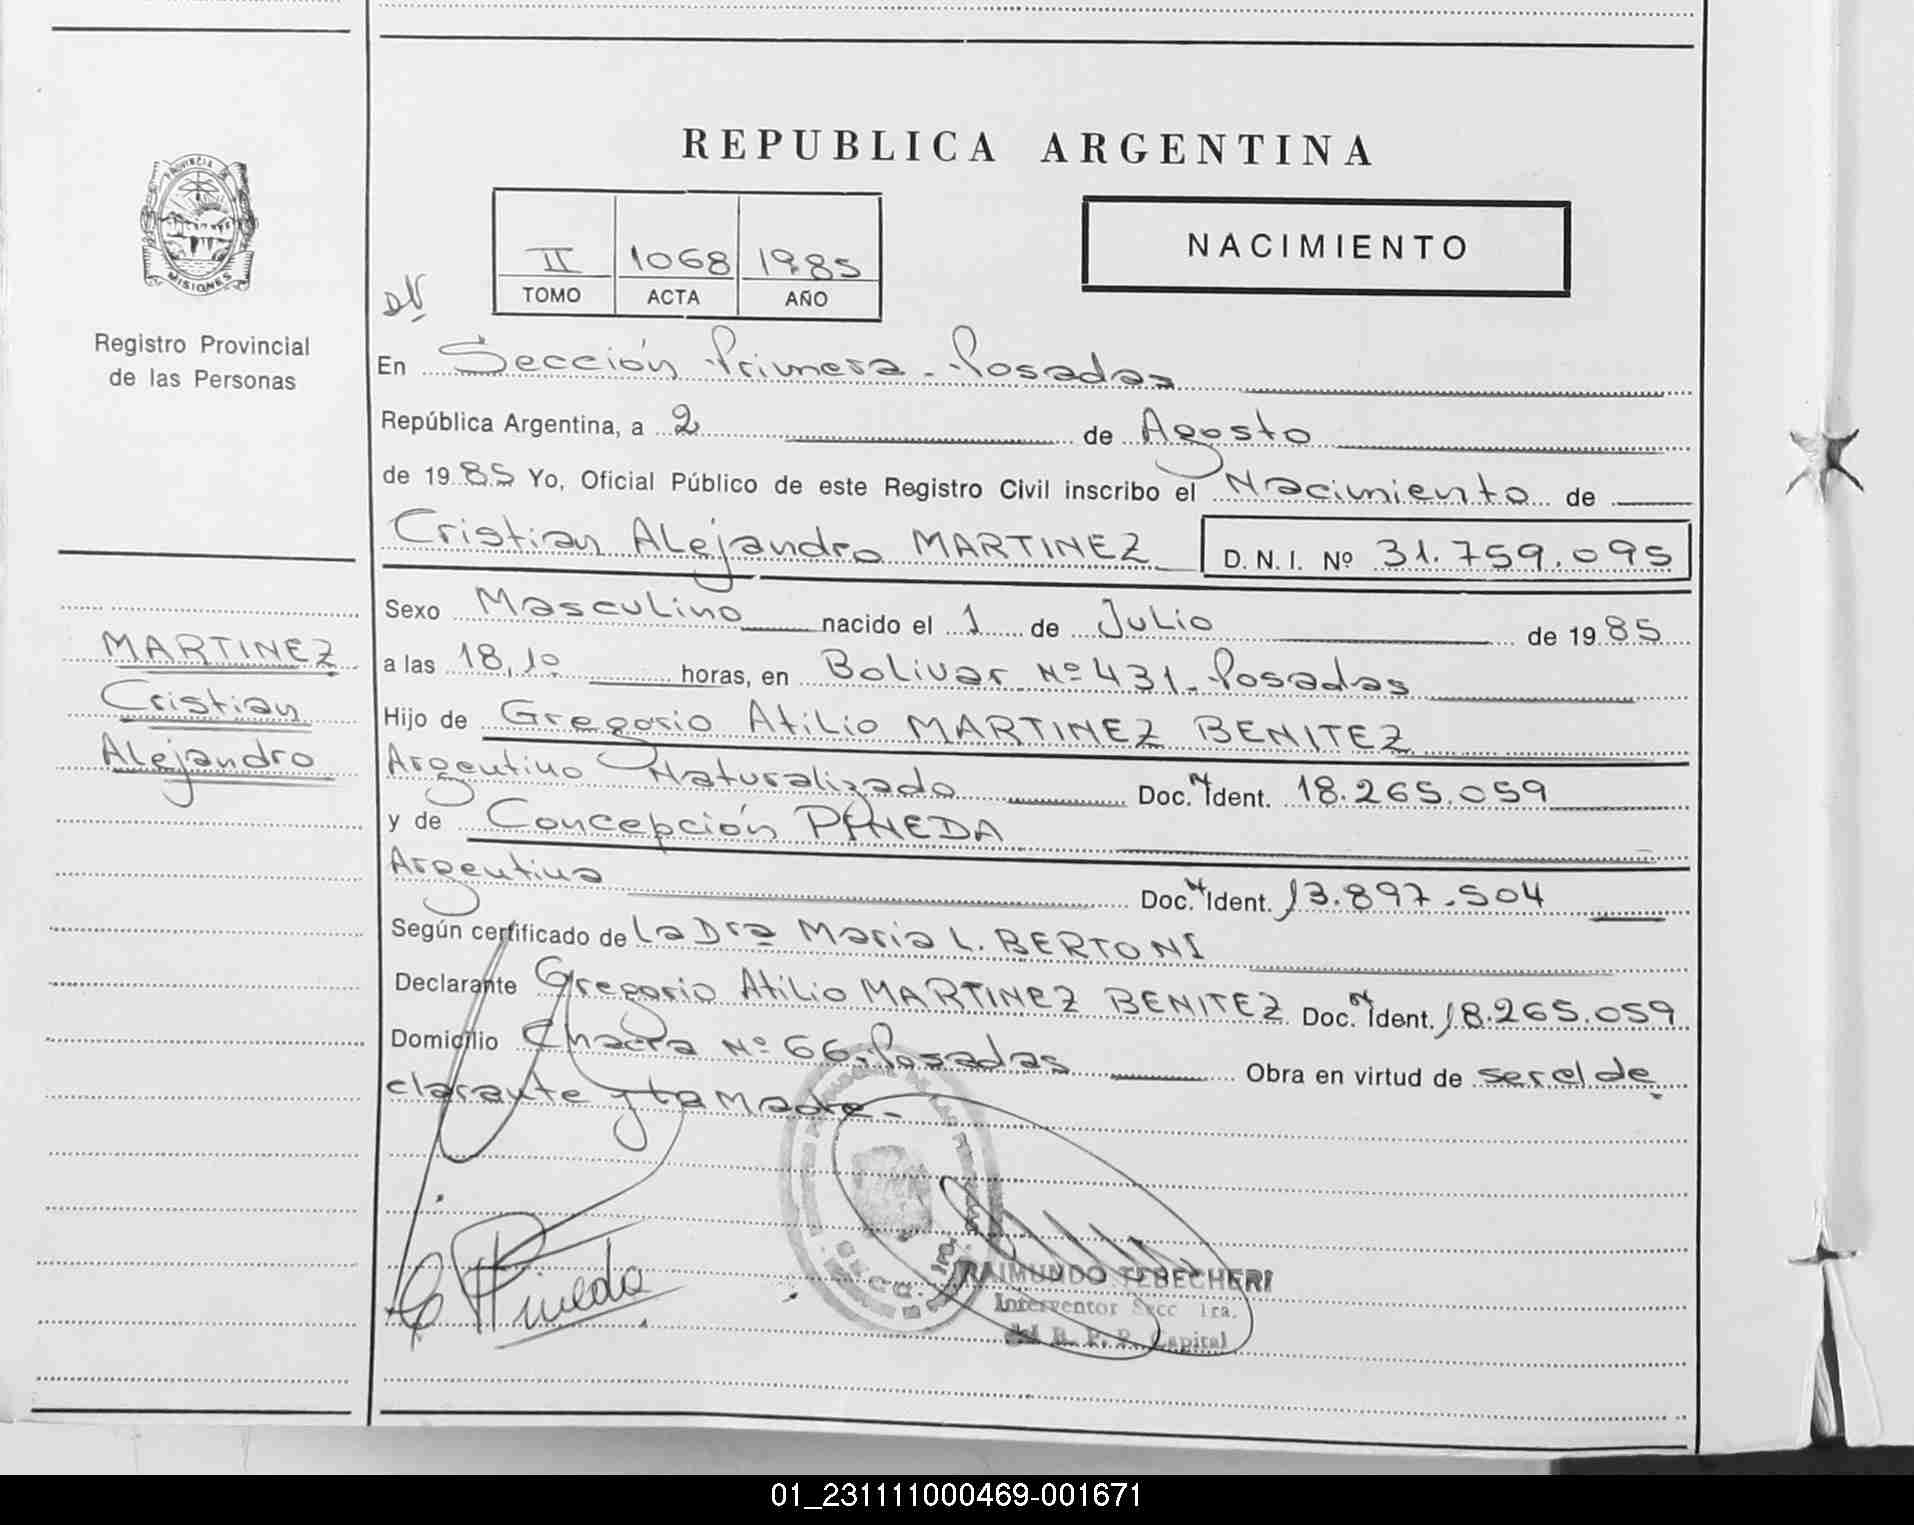 REPUBLICA ARGENTINA
PROVINCIA DE
MISIONES
Registro Provincial
de las Personas
II 1068 1985
TOMO ACTA AÑO
NACIMIENTO
DN
En Sección Primera - Posadas
República Argentina, a 2 de Agosto
de 1985 Yo, Oficial Público de este Registro Civil inscribo el Nacimiento de
Cristian Alejandro MARTINEZ D. N. I. Nº 31.759.095
Sexo Masculino nacido el 1 de Julio de 1985
a las 18,10 horas, en Bolivar Nº 431 - Posadas
Hijo de Gregorio Atilio MARTINEZ BENITEZ
Argentino Naturalizado Doc. N Ident. 18.265.059
y de Concepción PINEDA
Argentina Doc. N Ident. 13.897.504
Según certificado de La Dra Maria L. BERTONI
Declarante Gregorio Atilio MARTINEZ BENITEZ Doc. N Ident. 18.265.059
Domicilio Chacra Nº 66 - Posadas Obra en virtud de ser el de
clarante y la Madre -
MARTINEZ
Cristian
Alejandro
C Pineda
RAIMUNDO TEBECHERI
Interventor Secc 1ra.
del R. P. P. Capital
01_231111000469-001671